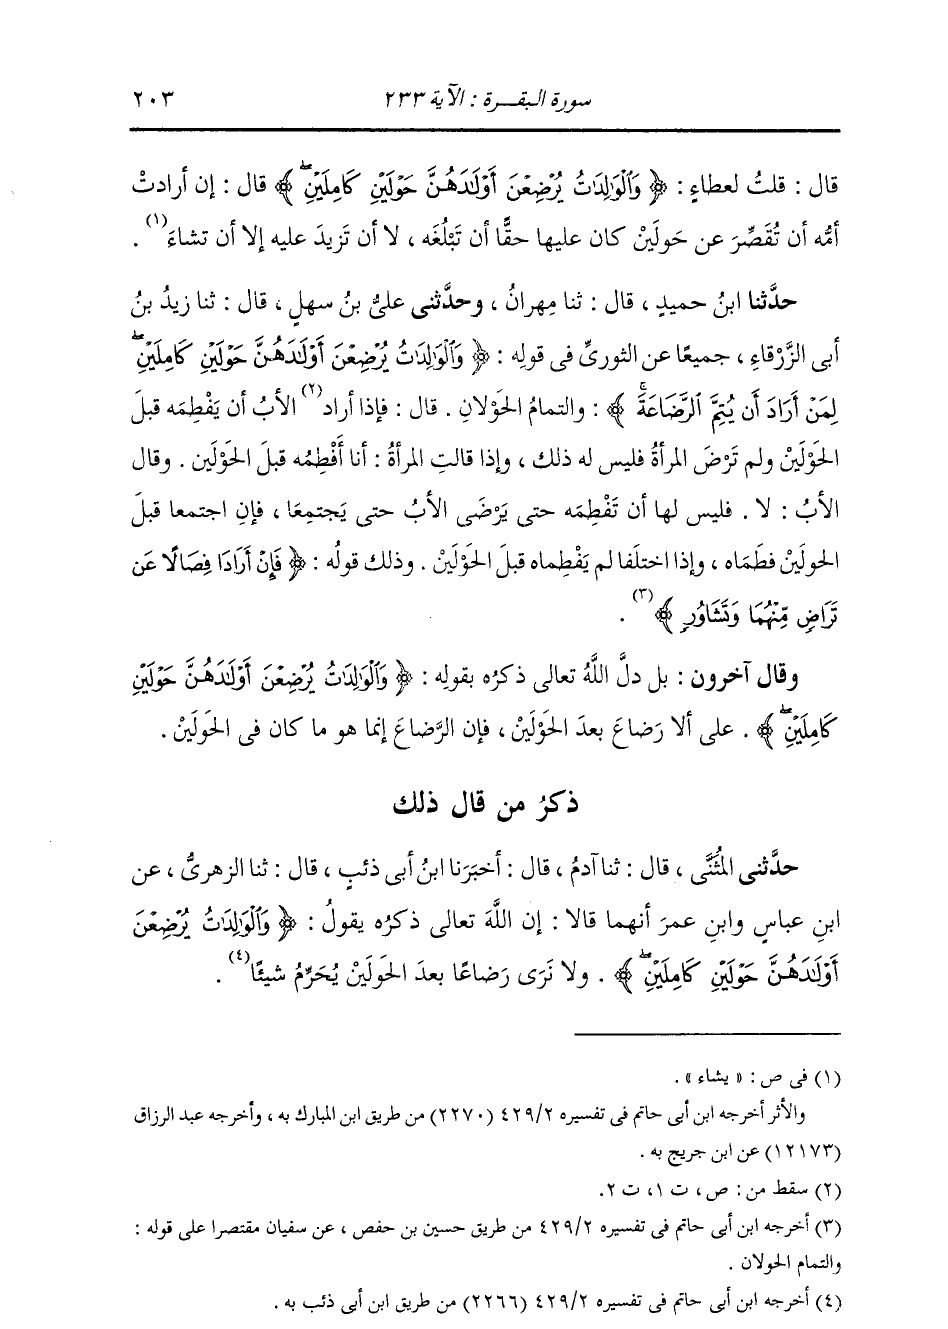 سورة البقـــرة : الآية ٢٣٣ ٢٠٣
قال : قلتُ لعطاءٍ : ﴿ وَٱلْوَٰلِدَٰتُ يُرْضِعْنَ أَوْلَٰدَهُنَّ حَوْلَيْنِ كَامِلَيْنِۖ ﴾ قال : إن أرادتْ
أمُّه أن تُقَصِّرَ عن حَولَيْنْ كان عليها حقًّا أن تَبْلُغَه ، لا أن تَزِيدَ عليه إلا أن تشاءَ(١) .
حدَّثنا ابنُ حميدٍ ، قال : ثنا مِهرانُ ، وحدَّثنى علىُّ بنُ سهلٍ ، قال : ثنا زيدُ بنُ
أبى الزَّرْقاءِ ، جميعًا عن الثورىِّ فى قولِه : ﴿ وَٱلْوَٰلِدَٰتُ يُرْضِعْنَ أَوْلَٰدَهُنَّ حَوْلَيْنِ كَامِلَيْنِۖ
لِمَنْ أَرَادَ أَن يُتِمَّ ٱلرَّضَاعَةَۚ ﴾ : والتمامُ الحَوْلان . قال : فإذا أراد(٢) الأبُ أن يَفْطِمَه قبلَ
الحَوْلَيْنْ ولم تَرْضَ المرأةُ فليس له ذلك ، وإذا قالتِ المرأةُ : أنا أَفْطِمُه قبلَ الحَوْلَين . وقال
الأبُ : لا . فليس لها أن تَفْطِمَه حتى يَرْضَى الأبُ حتى يَجتمِعَا ، فإنِ اجتمعا قبلَ
الحولَيْنْ فطَمَاه ، وإذا اختلَفا لم يَفْطِماه قبلَ الحَوْلَيْنْ . وذلك قولُه : ﴿ فَإِنْ أَرَادَا فِصَالًا عَن
تَرَاضٍ مِّنْهُمَا وَتَشَاوُرٍ ﴾(٣) .
وقال آخرون : بل دلَّ اللَّهُ تعالى ذكرُه بقولِه : ﴿ وَٱلْوَٰلِدَٰتُ يُرْضِعْنَ أَوْلَٰدَهُنَّ حَوْلَيْنِ
كَامِلَيْنِۖ ﴾ . على ألا رَضاعَ بعدَ الحَوْلَيْنْ ، فإن الرَّضاعَ إنما هو ما كان فى الحَولَيْنْ .
ذكرُ من قال ذلك
حدَّثنى المُثَنَّى ، قال : ثنا آدمُ ، قال : أخبَرَنا ابنُ أبى ذئبٍ ، قال : ثنا الزهرىُّ ، عن
ابنِ عباسٍ وابنِ عمرَ أنهما قالا : إن اللَّهَ تعالى ذكرُه يقولُ : ﴿ وَٱلْوَٰلِدَٰتُ يُرْضِعْنَ
أَوْلَٰدَهُنَّ حَوْلَيْنِ كَامِلَيْنِۖ ﴾ . ولا نَرَى رَضاعًا بعدَ الحَولَيْنْ يُحَرِّمُ شيئًا(٤) .
(١) فى ص : « يشاء » .
والأثر أخرجه ابن أبى حاتم فى تفسيره ٤٢٩/٢ (٢٢٧٠) من طريق ابن المبارك به ، وأخرجه عبد الرزاق
(١٢١٧٣) عن ابن جريج به .
(٢) سقط من : ص ، ت ١، ت ٢.
(٣) أخرجه ابن أبى حاتم فى تفسيره ٤٢٩/٢ من طريق حسين بن حفص ، عن سفيان مقتصرا على قوله :
والتمام الحولان .
(٤) أخرجه ابن أبى حاتم فى تفسيره ٤٢٩/٢ (٢٢٦٦) من طريق ابن أبى ذئب به .